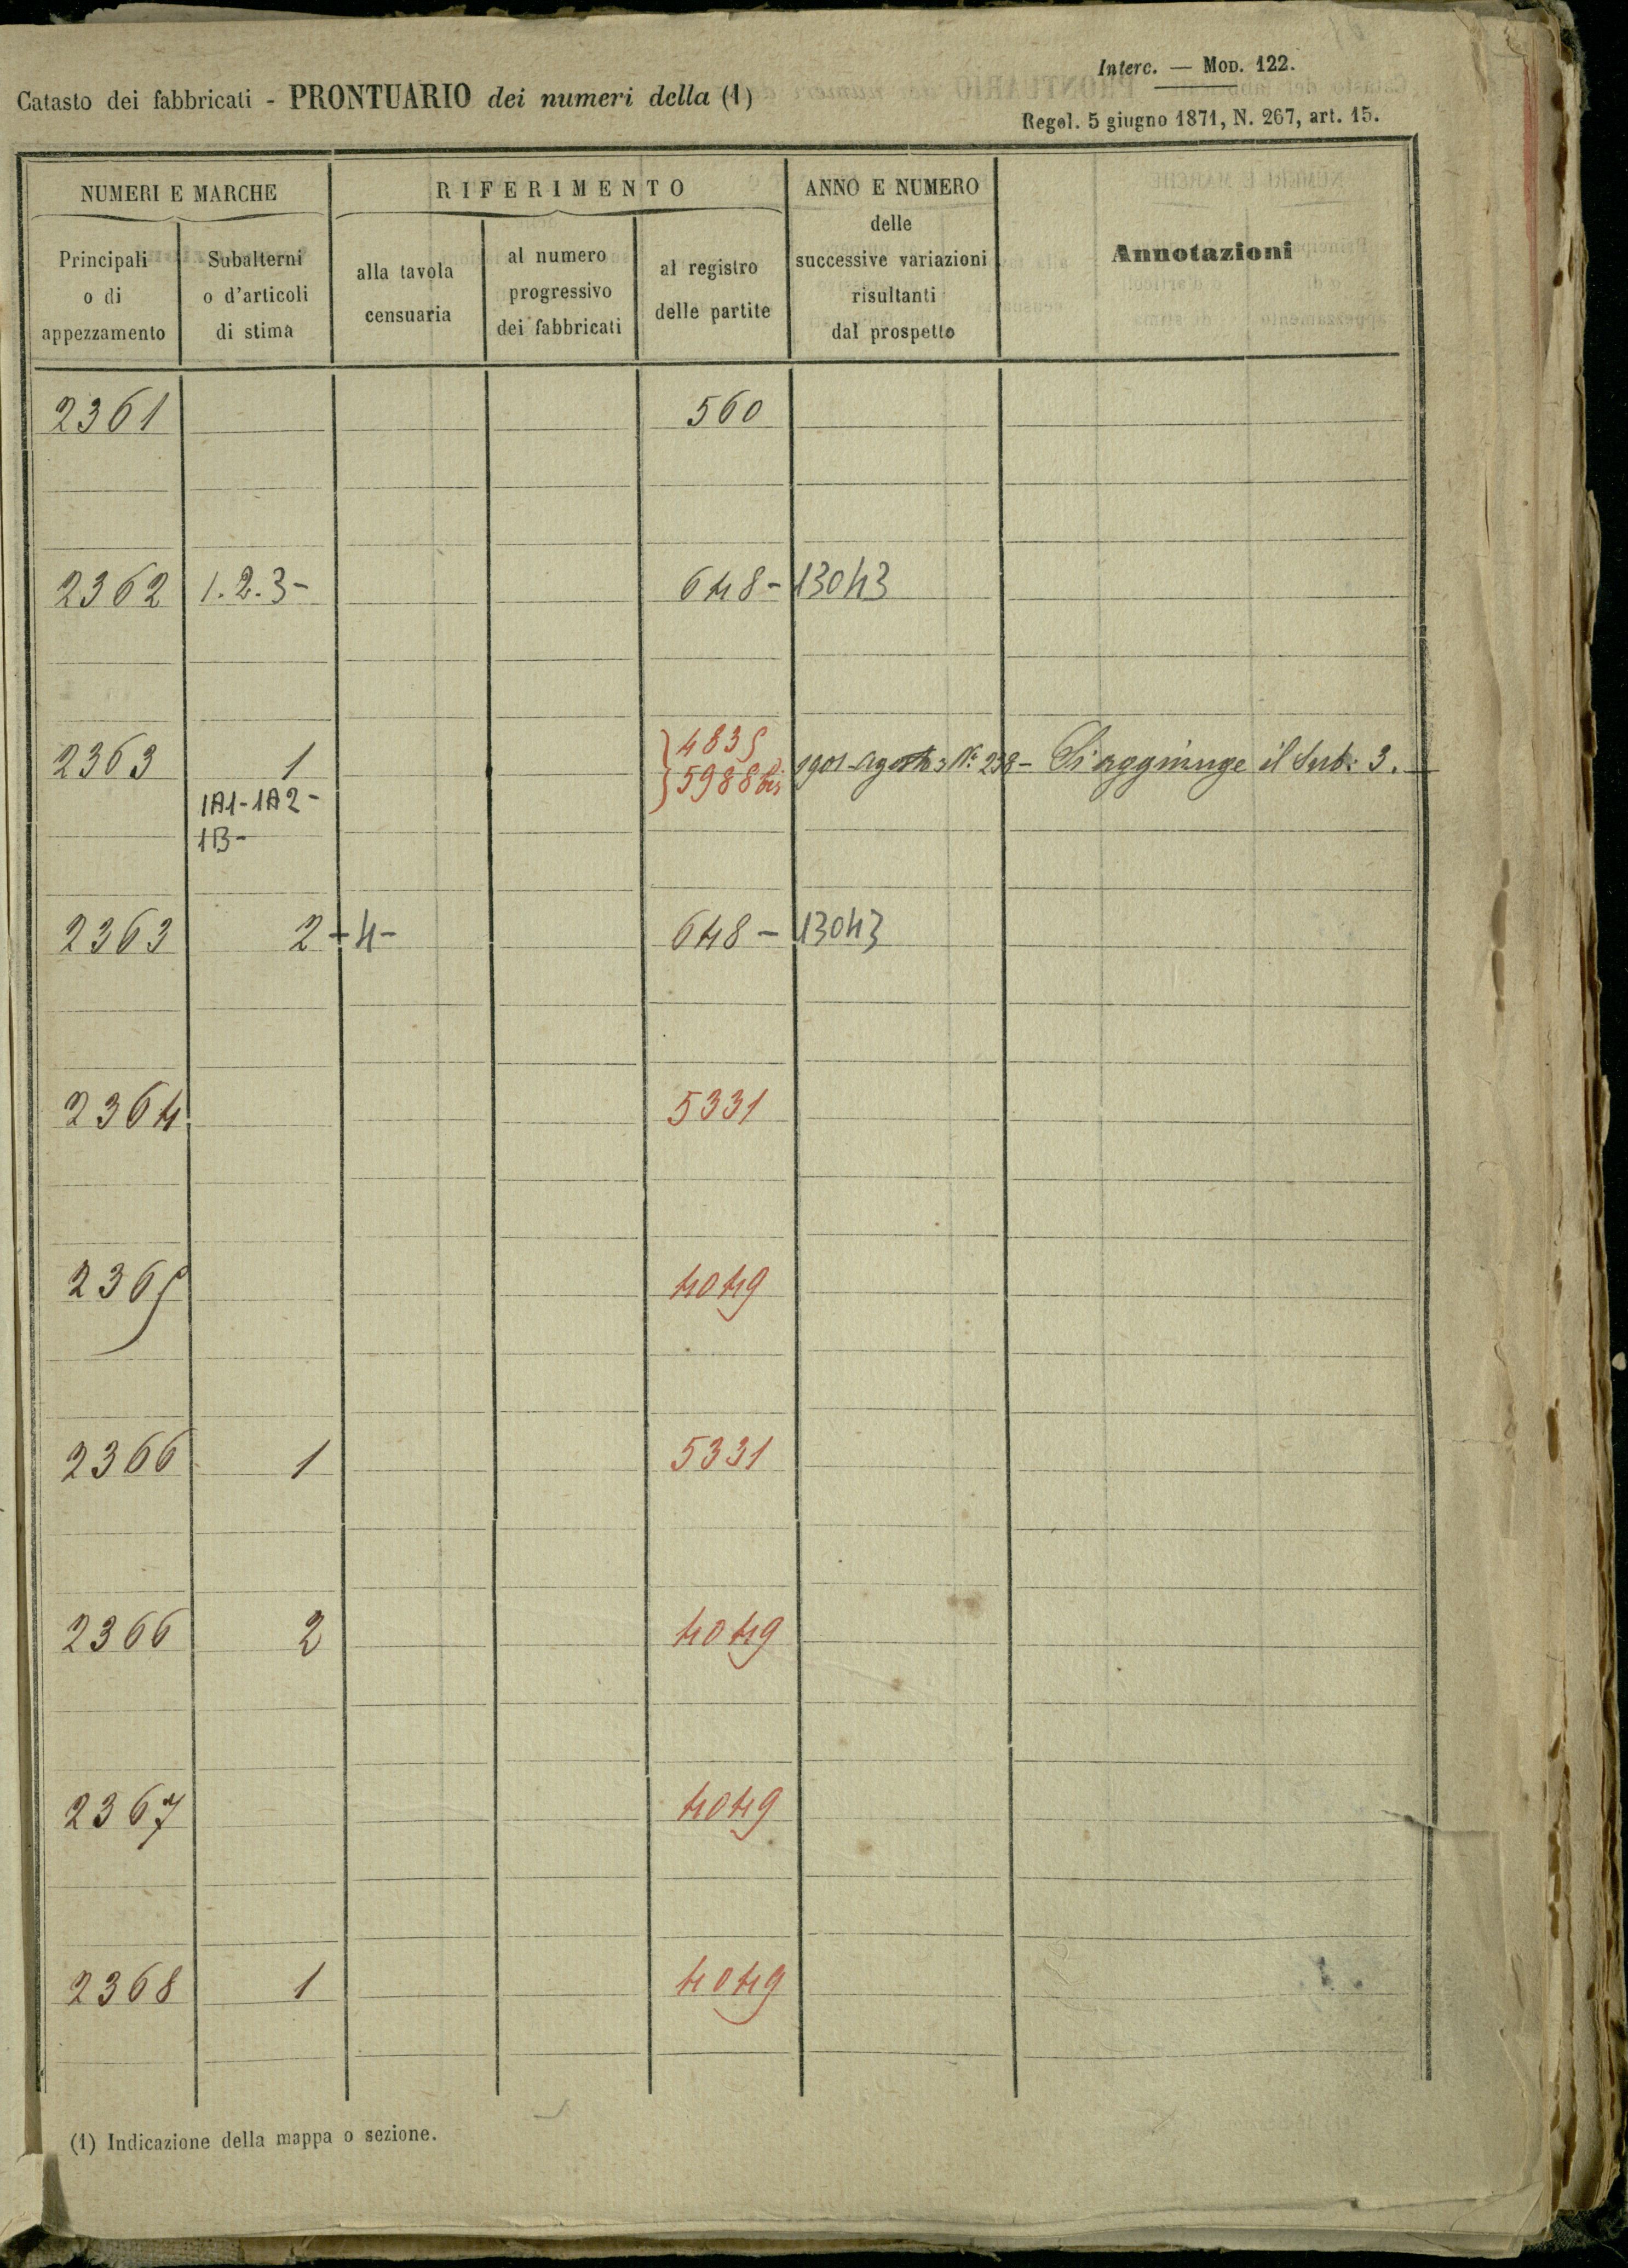 Interc. — Mod. 122.
Catasto dei fabbricati - PRONTUARIO dei numeri della (1)
Regol. 5 giugno 1871, N. 267, art. 15.
NUMERI E MARCHE
RIFERIMENTO
ANNO E NUMERO
delle
successive variazioni
risultanti
dal prospetto
Annotazioni
Principali
o di
appezzamento
Subalterni
o d'articoli
di stima
alla tavola
censuaria
al numero
progressivo
dei fabbricati
al registro
delle partite
2361 560
2362 1.2.3- 648- 13043
2363 1 4835 1901 - Agosto N.° 238 - Si aggiunge il Sub: 3.
5988 bis
1A1-1A2-
1B-
2363 2-4- 648- 13043
2364 5331
2365 4049
2366 1 5331
2366 2 4049
2367 4049
2368 1 4049
(1) Indicazione della mappa o sezione.